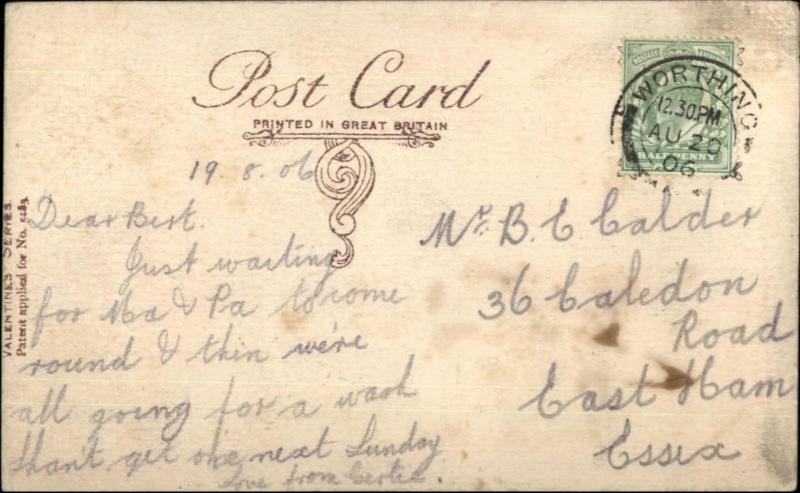 Post Card
PRINTED IN GREAT BRITAIN
WORTHING
12.30PM
AU 20
06
HALFPENNY
VALENTINES SERIES
Patent applied for No. 5283
19.8.06
Dear Bert.
Just waiting
for Ma & Pa to come
round & then we're
all going for a wash
shant get one next Sunday
Love from Bertie.
Mr. B. C Calder
36 Caledon
Road
East Ham
Essex